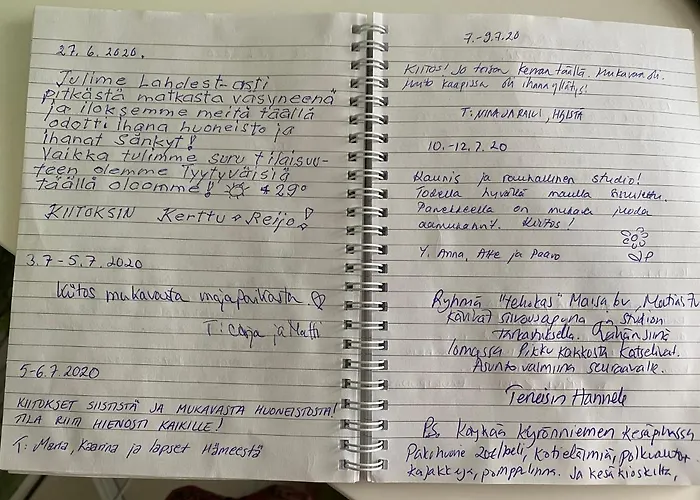 27.6.2020.
Tulime Lahdest-asti
pitkästä matkasta väsyneenä
ja iloksemme meitä täällä
odotti ihana huoneisto ja
ihanat sänkyt!
Vaikka tulimme suru tilaisuu-
teen olemme tyytyväisiä
täällä oloomme! +29°
KIITOKSIN Kerttu & Reijo!
3.7-5.7.2020
Kiitos mukavasta majapaikasta.
T: ja Matti
5-6.7.2020
KIITOKSET SIISTISTÄ JA MUKAVASTA HUONEISTOSTA!
TILA RIITI HIENOSTI KAIKILLE!
T: Maria, Kaarina ja lapset Hämeestä
7.-9.7.20
KIITOS! Jo toisen kerran täällä. Mukavan oli.
kaapissa oli ihana yllätys!
T: NINA JA RAILI,
10.-12.7.20
Kaunis ja rauhallinen studio!
Todella hyvällä maulla sisustettu.
Parvekkeella on mukava juoda
aamukahvit. Kiitos!
T. Anna, Atte ja Paavo
Ryhmä "tehokas" Maisa
kävivät siivousapuna studion
tarkastuksella.
lomassa Pikku kakkosta katselivat.
Asunto valmiina seuraavalle.
Terveisin Hannele
Ps. käykää Kyrönniemen kesäpihassa
Pakohuone 20€/peli, kotieläimiä, polkuautoja
pomppulinna. Ja kesäkioskilta,